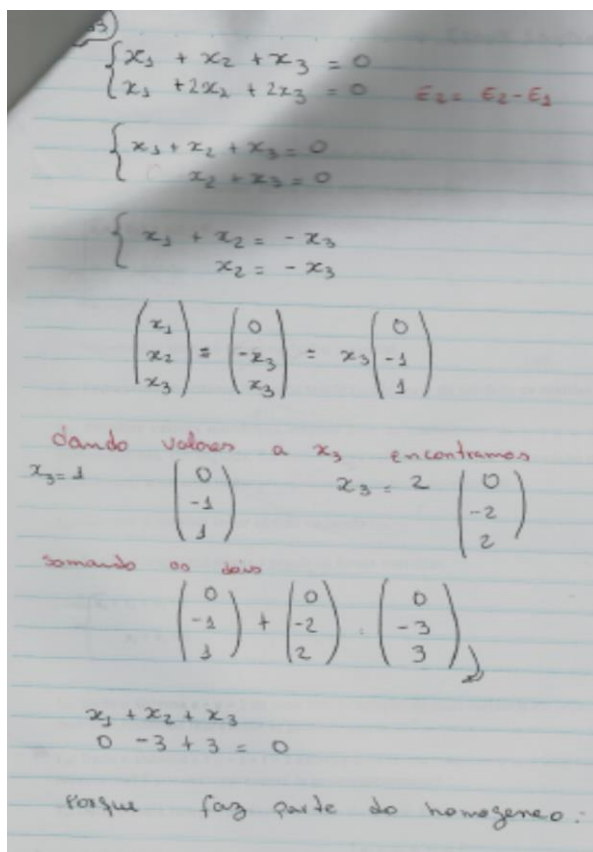 x₁ + x₂ + x₃ = 0
x₁ + 2x₂ + 2x₃ = 0 E₂ = E₂ - E₁
x₁ + x₂ + x₃ = 0
x₂ + x₃ = 0
x₁ + x₂ = - x₃
x₂ = - x₃
(x₁ x₂ x₃) = (0 -x₃ x₃) = x₃ (0 -1 1)
dando valores a x₃ encontramos
x₃ = 1 (0 -1 1) x₃ = 2 (0 -2 2)
somando os dois
(0 -1 1) + (0 -2 2) = (0 -3 3)
x₁ + x₂ + x₃
0 - 3 + 3 = 0
Porque faz parte do homogeneo.